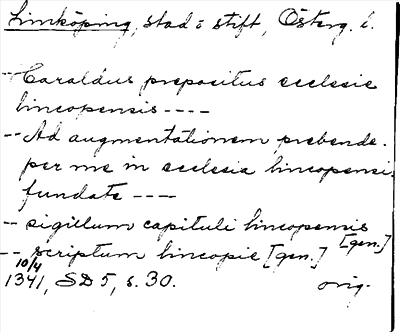 Linköping, stad o stift, Österg. l.
-- Caraldus prepositus ecclesie
lincopensis ----
-- Ad augmentationem prebende
per me in ecclesia lincopensi
fundate ----
-- sigillum capituli lincopensis [gen.]
-- scriptum lincopie [gen.]
10/4
1341, SD 5, s. 30. orig.